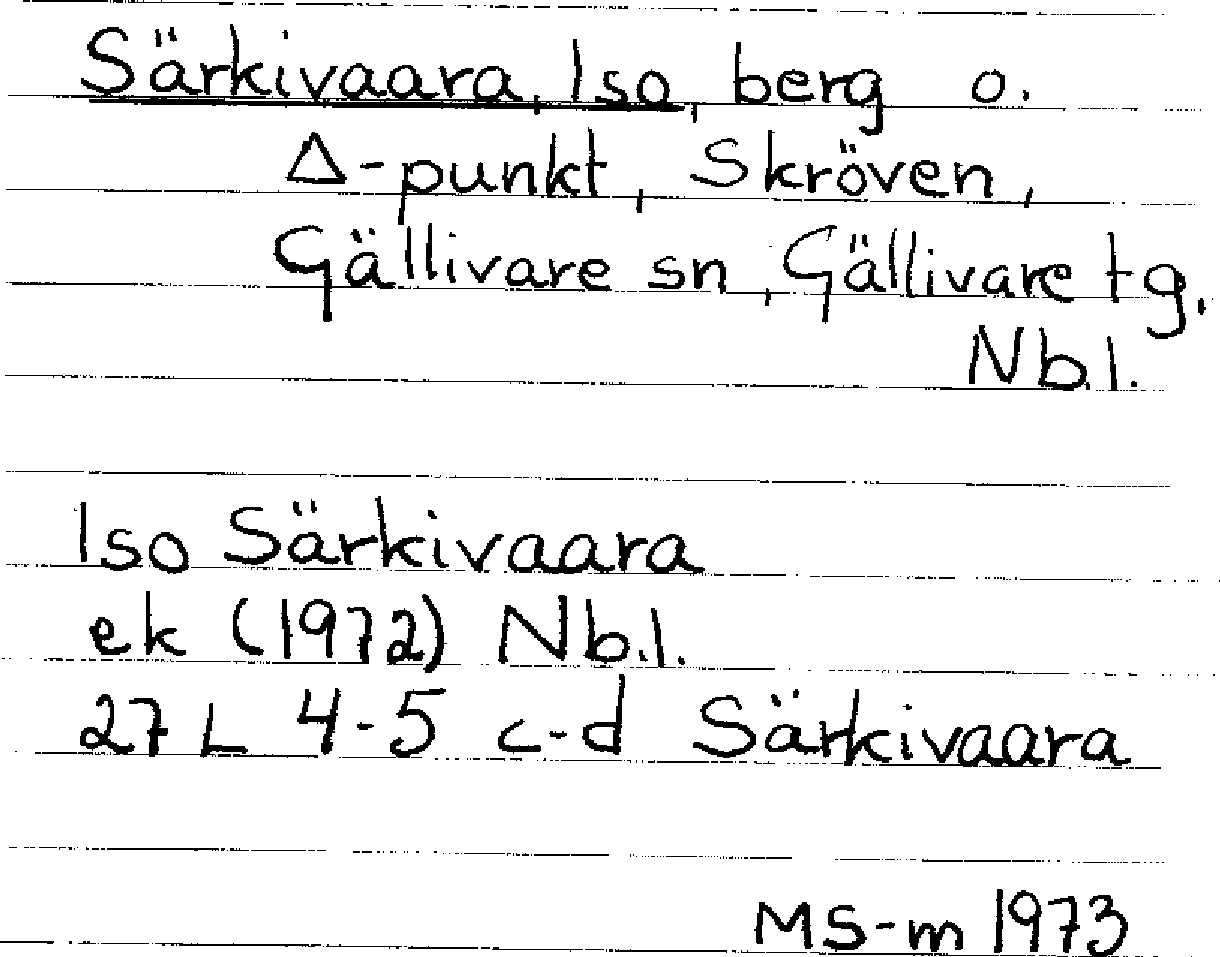 Särkivaara, Iso, berg o.
Δ-punkt, Skröven,
Gällivare sn, Gällivare tg.
Nb.l.
Iso Särkivaara
ek (1972) Nb.l.
27 L 4-5 c-d Särkivaara
MS-m 1973